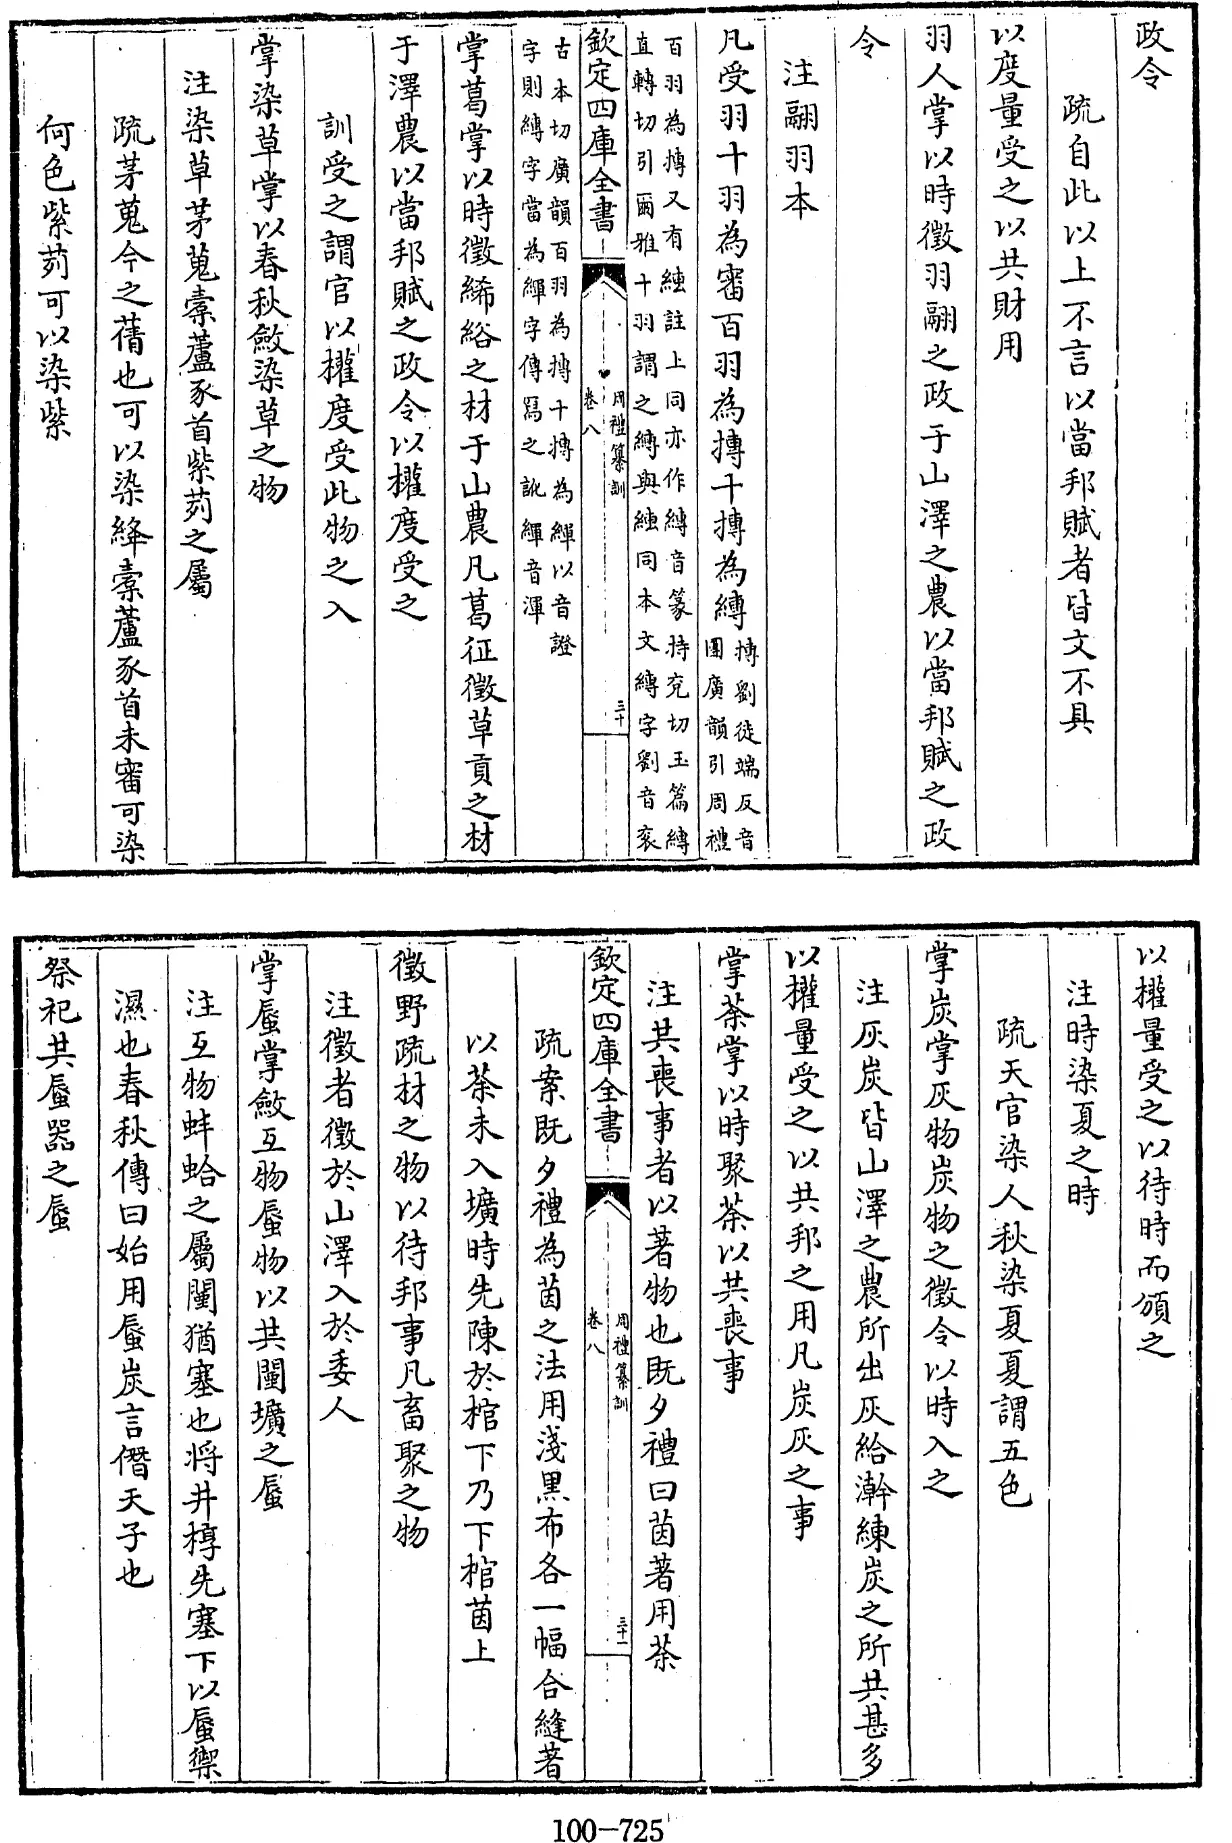 政令
疏自此以上不言以當邦賦者皆文不具
以度量受之以共財用
羽人掌以時徵羽翮之政于山澤之農以當邦賦之政
令
注翮羽本
凡受羽十羽為審百羽為摶十摶為縳摶劉徒端反音
團廣韻引周禮
百羽為摶又有䌸註上同亦作縳音篆持兖切玉篇縳
直轉切引爾雅十羽謂之縳與䌸同本文縳字劉音衮
欽定四庫全書
周禮纂訓
卷八
三十
古本切廣韻百羽為摶十摶為緷以音證
字則縳字當為緷字傳冩之訛緷音渾
掌葛掌以時徵絺綌之材于山農凡葛征徵草貢之材
于澤農以當邦賦之政令以權度受之
訓受之謂官以權度受此物之入
掌染草掌以春秋斂染草之物
注染草茅蒐橐蘆豕首紫茢之屬
疏茅蒐今之蒨也可以染絳橐蘆豕首未審可染
何色紫茢可以染紫
以權量受之以待時而頒之
注時染夏之時
疏天官染人秋染夏夏謂五色
掌炭掌灰物炭物之徵令以時入之
注灰炭皆山澤之農所出灰給澣練炭之所共甚多
以權量受之以共邦之用凡炭灰之事
掌荼掌以時聚荼以共喪事
注共喪事者以著物也既夕禮曰茵著用荼
欽定四庫全書
周禮纂訓
卷八
三十一
疏案既夕禮為茵之法用淺黒布各一幅合縫著
以荼未入壙時先陳於棺下乃下棺茵上
徵野疏材之物以待邦事凡畜聚之物
注徵者徵於山澤入於委人
掌蜃掌斂互物蜃物以共闉壙之蜃
注互物蚌蛤之屬闉猶塞也將井椁先塞下以蜃禦
濕也春秋傳曰始用蜃炭言僭天子也
祭祀共蜃器之蜃
100-725